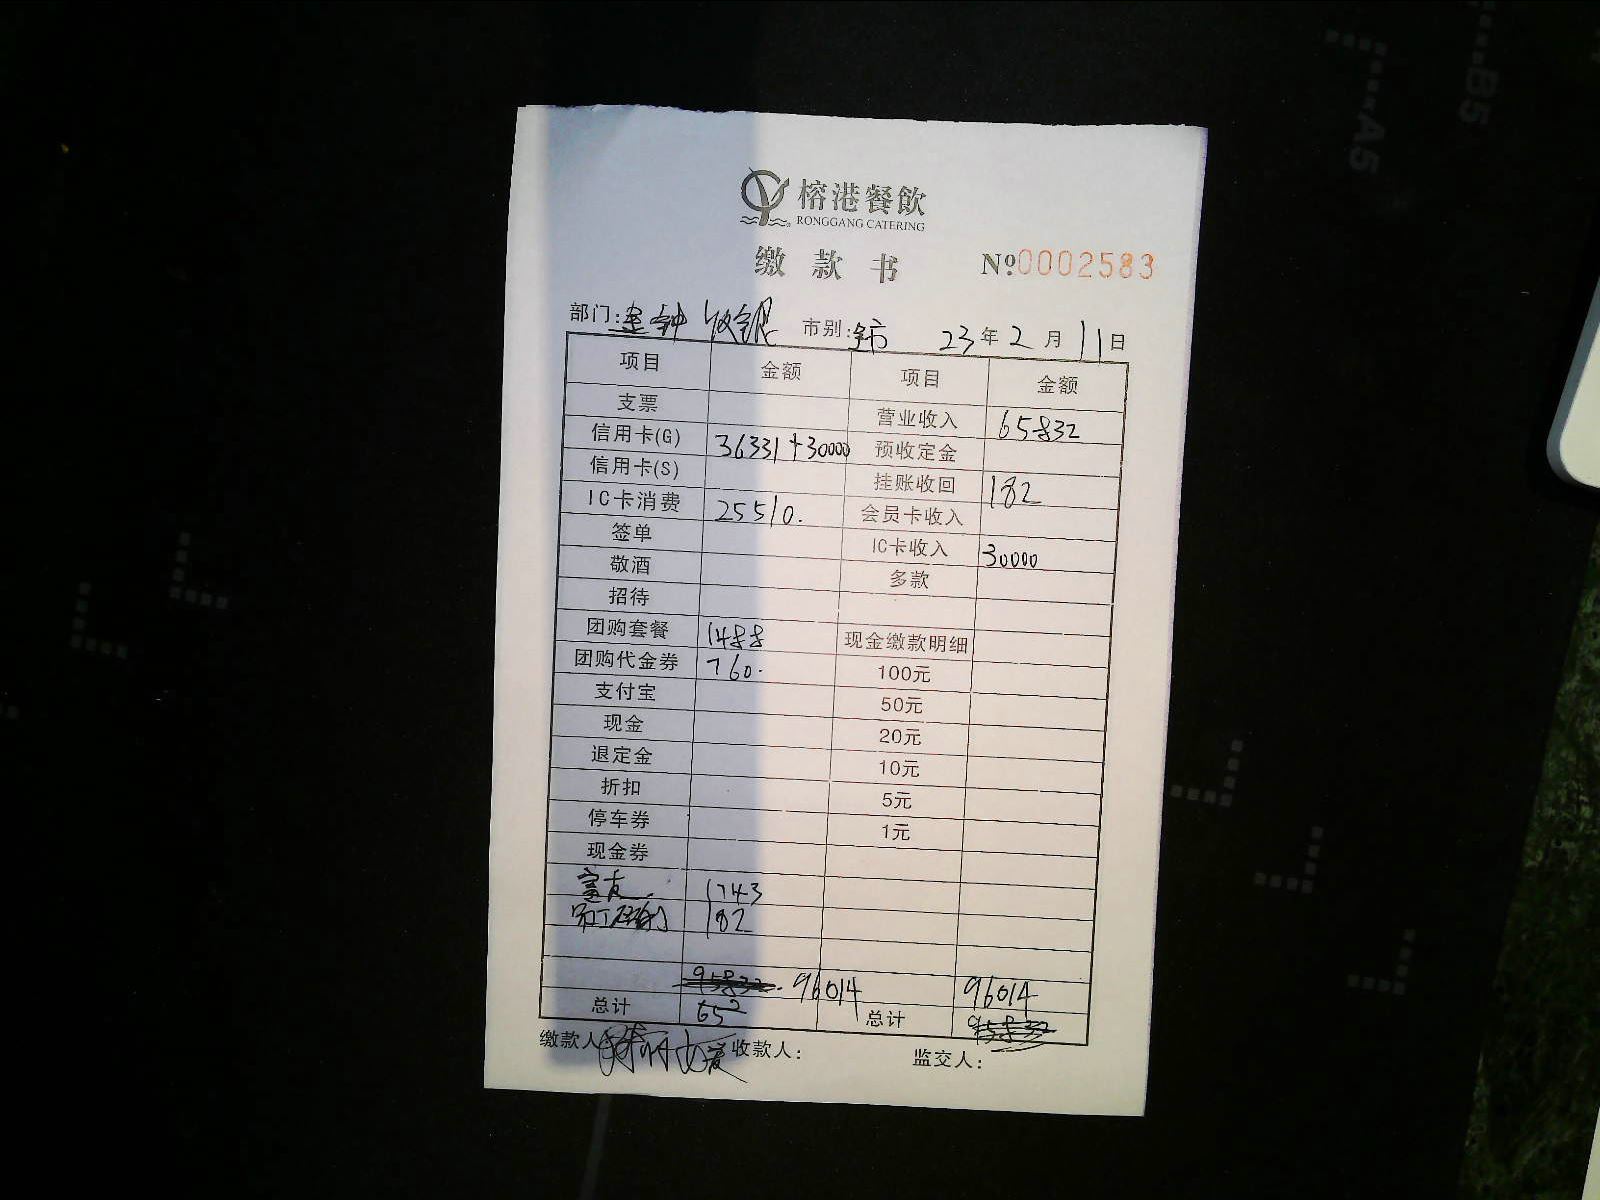 榕港餐飲
RONGGANG CATERING
缴款书 №0002583
部门:金钟 收银 市别:全市 23年2月11日
项目 金额 项目 金额
支票 营业收入 65832
信用卡(G) 36331+30000 预收定金
信用卡(S) 挂账收回 182
IC卡消费 25510. 会员卡收入
签单 IC卡收入 30000
敬酒 多款
招待
团购套餐 1488 现金缴款明细
团购代金券 760. 100元
支付宝 50元
现金 20元
退定金 10元
折扣 5元
停车券 1元
现金券
富友. 1743
员工 182
95832. 96014 96014
总计 总计 95832
缴款人 收款人: 监交人: